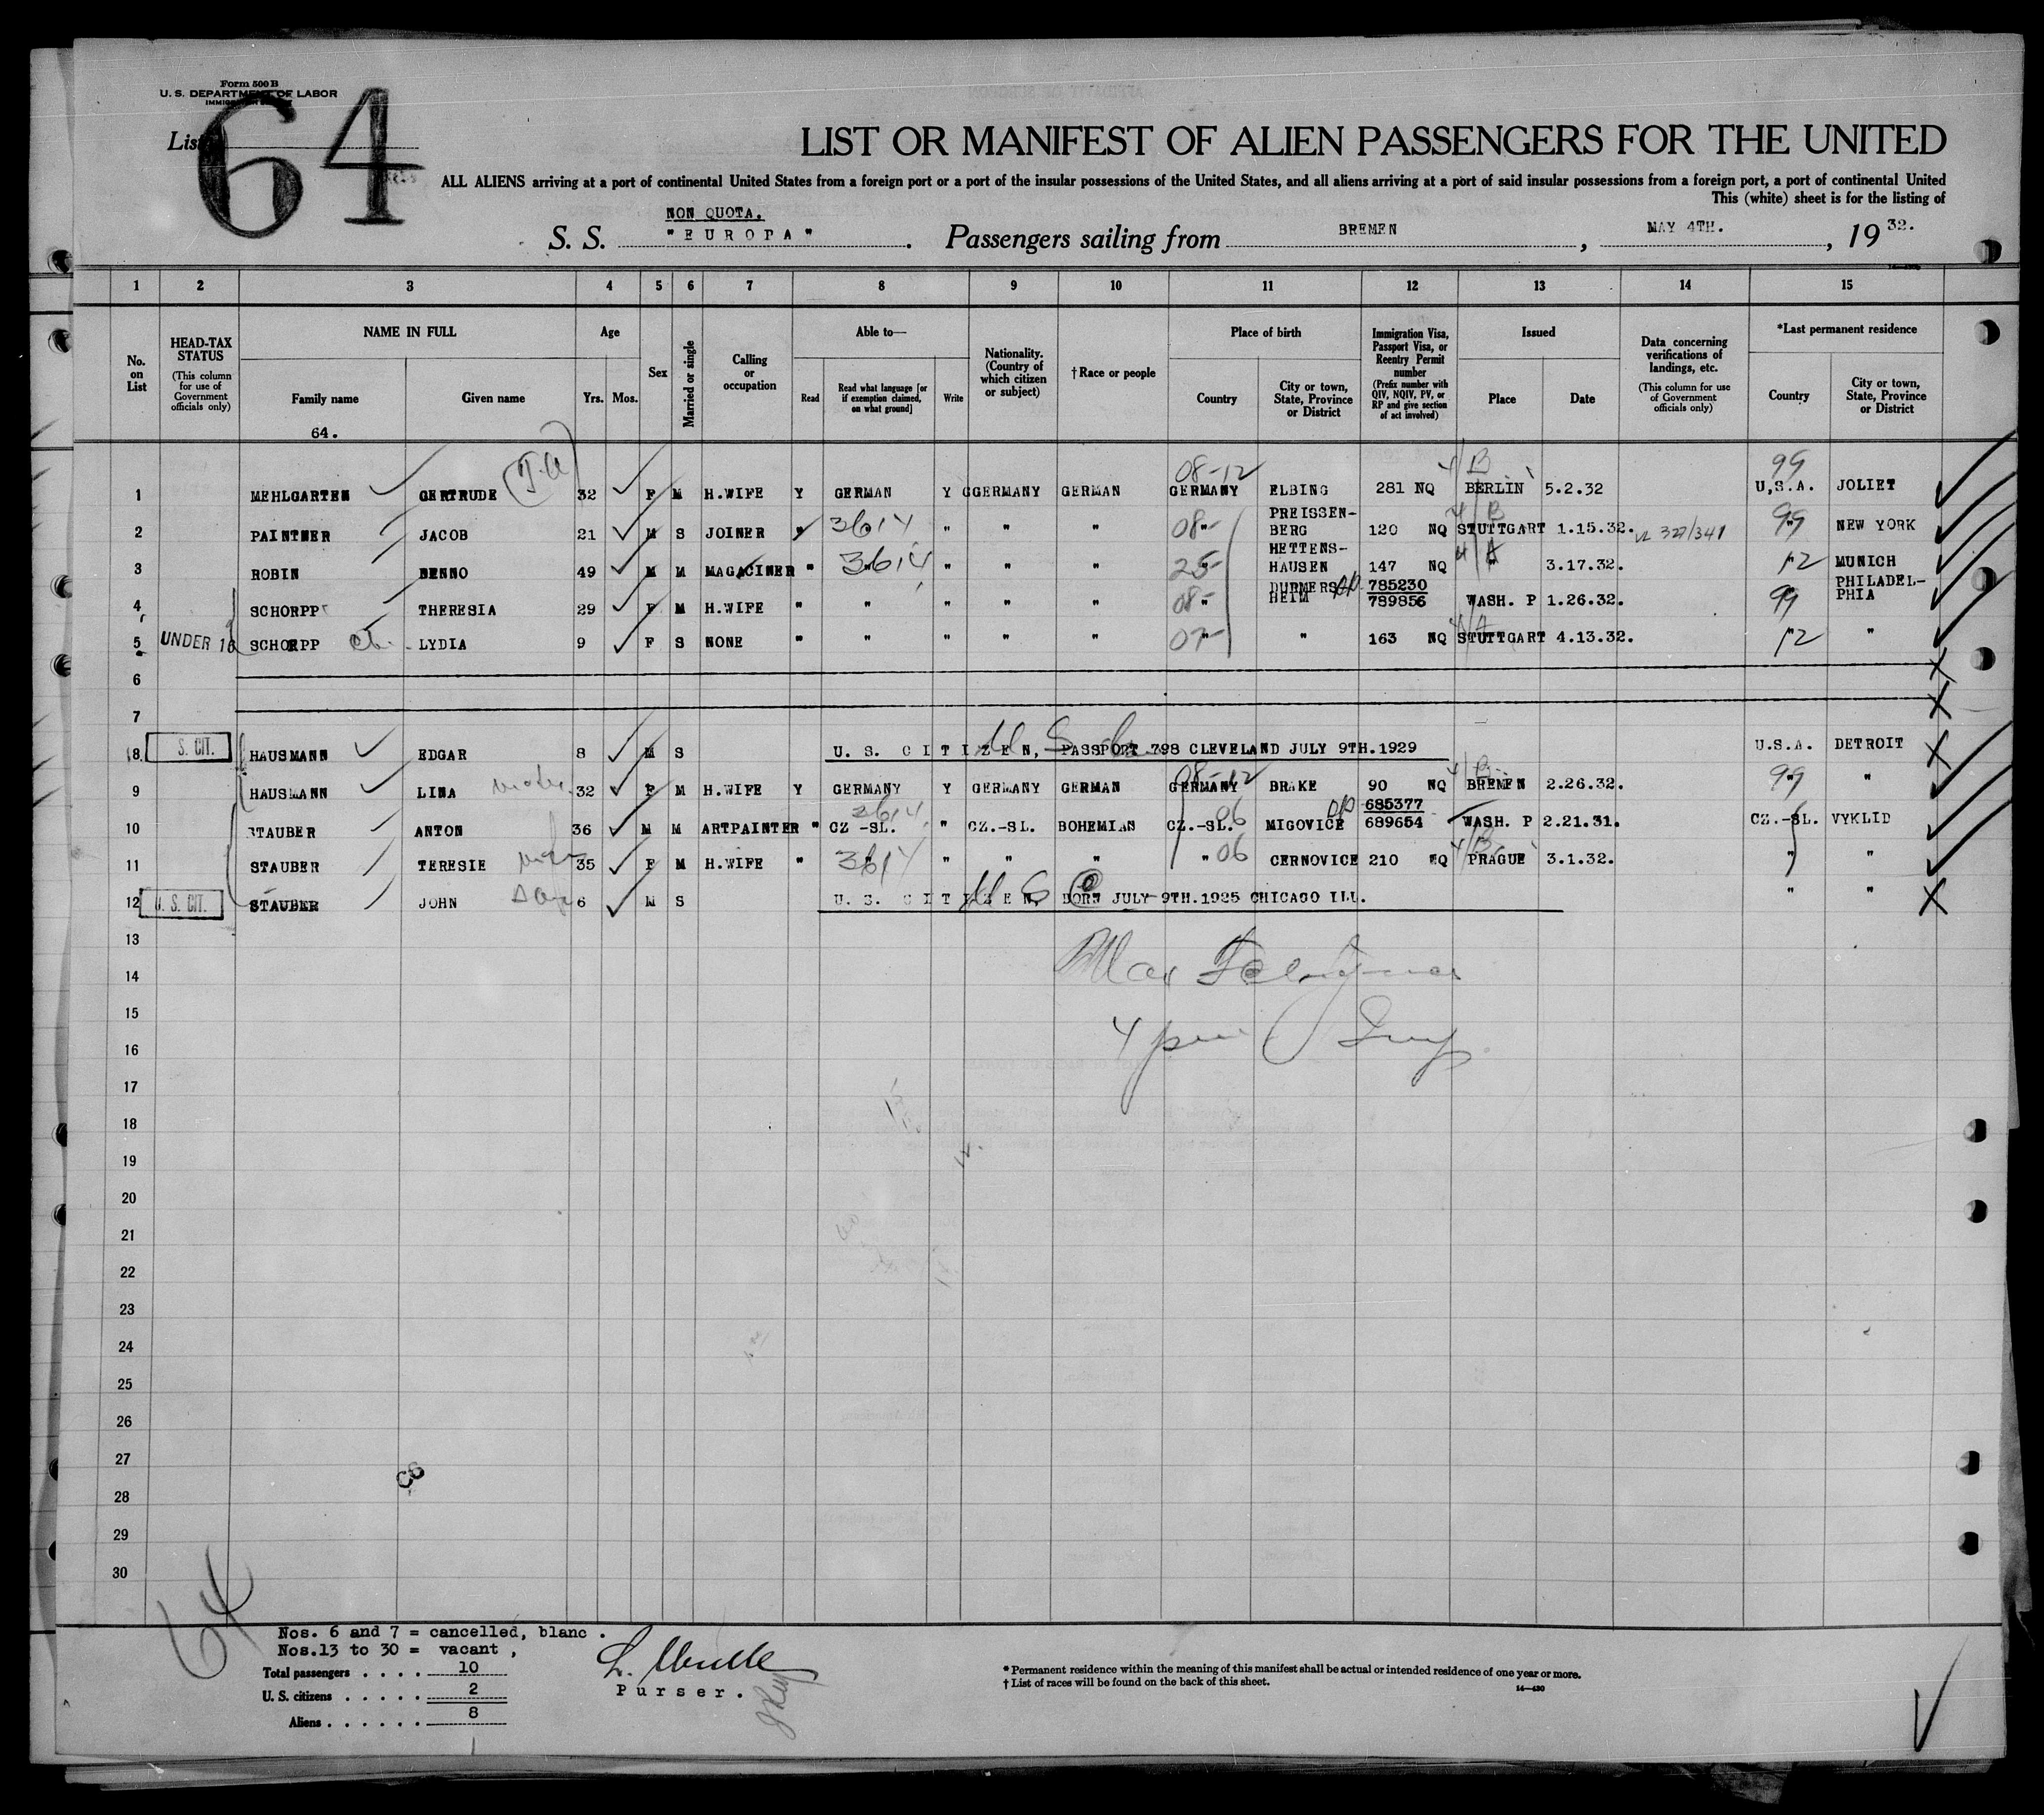 Form 500 B
U. S. DEPARTMENT OF LABOR
List 64
LIST OR MANIFEST OF ALIEN PASSENGERS FOR THE UNITED
ALL ALIENS arriving at a port of continental United States from a foreign port or a port of the insular possessions of the United States, and all aliens arriving at a port of said insular possessions from a foreign port, a port of continental United
This (white) sheet is for the listing of
NON QUOTA.
S. S. "EUROPA". Passengers sailing from BREMEN, MAY 4TH., 1932.
1 2 3 4 5 6 7 8 9 10 11 12 13 14 15
No. on List
HEAD-TAX STATUS (This column for use of Government officials only)
NAME IN FULL
Family name Given name
64.
Age
Yrs. Mos.
Sex
Married or single
Calling or occupation
Able to—
Read Read what language [or if exemption claimed, on what ground] Write
Nationality. (Country of which citizen or subject)
†Race or people
Place of birth
Country City or town, State, Province or District
Immigration Visa, Passport Visa, or Reentry Permit number (Prefix number with QIV, NQIV, PV, or RP and give section of act involved)
Issued
Place Date
Data concerning verifications of landings, etc. (This column for use of Government officials only)
*Last permanent residence
Country City or town, State, Province or District
08-12 4/B 99
1 MEHLGARTEN GERTRUDE 32 F M H.WIFE Y GERMAN Y GERMANY GERMAN GERMANY ELBING 281 NQ BERLIN 5.2.32 U,S.A. JOLIET
2 PAINTNER JACOB 21 M S JOINER " 3614 " " " 08- " PREISSEN-BERG 120 NQ STUTTGART 1.15.32. 99 " NEW YORK
3 ROBIN BENNO 49 M M MAGACINER " 3614 " " " 25- " HETTENS-HAUSEN 147 NQ " 3.17.32. 12 " MUNICH
4 SCHORPP THERESIA 29 F M H.WIFE " " " " " 08- " DURMERS-HEIM 785230 789856 WASH. P 1.26.32. 99 " PHILADEL-PHIA
5 UNDER 16 SCHORPP LYDIA 9 F S NONE " " " " " 07- " " 163 NQ STUTTGART 4.13.32. 12 " "
6
7
8 S. CIT. HAUSMANN EDGAR 8 M S U. S. CITIZEN, PASSPORT 798 CLEVELAND JULY 9TH.1929 U.S.A. DETROIT
9 HAUSMANN LINA 32 F M H.WIFE Y GERMANY Y GERMANY GERMAN 08-12 GERMANY BRAKE 90 NQ BREMEN 2.26.32. 99 " "
10 STAUBER ANTON 36 M M ARTPAINTER " CZ -SL. 3614 " CZ.-SL. BOHEMIAN CZ.-SL. 06 MIGOVICE 685377 689654 WASH. P 2.21.31. CZ.-SL. VYKLID
11 STAUBER TERESIE 35 F M H.WIFE " 3614 " " " " 06 CERNOVICE 210 NQ PRAGUE 3.1.32. " "
12 U. S. CIT. STAUBER JOHN 6 M S U. S. CITIZEN, BORN JULY 9TH.1925 CHICAGO ILL. " "
13
14
15
16
17
18
19
20
21
22
23
24
25
26
27
28
29
30
64
Nos. 6 and 7 = cancelled, blanc .
Nos.13 to 30 = vacant ,
Total passengers . . . . 10
U. S. citizens . . . . . 2
Aliens . . . . . . 8
Purser.
* Permanent residence within the meaning of this manifest shall be actual or intended residence of one year or more.
† List of races will be found on the back of this sheet.
14—430